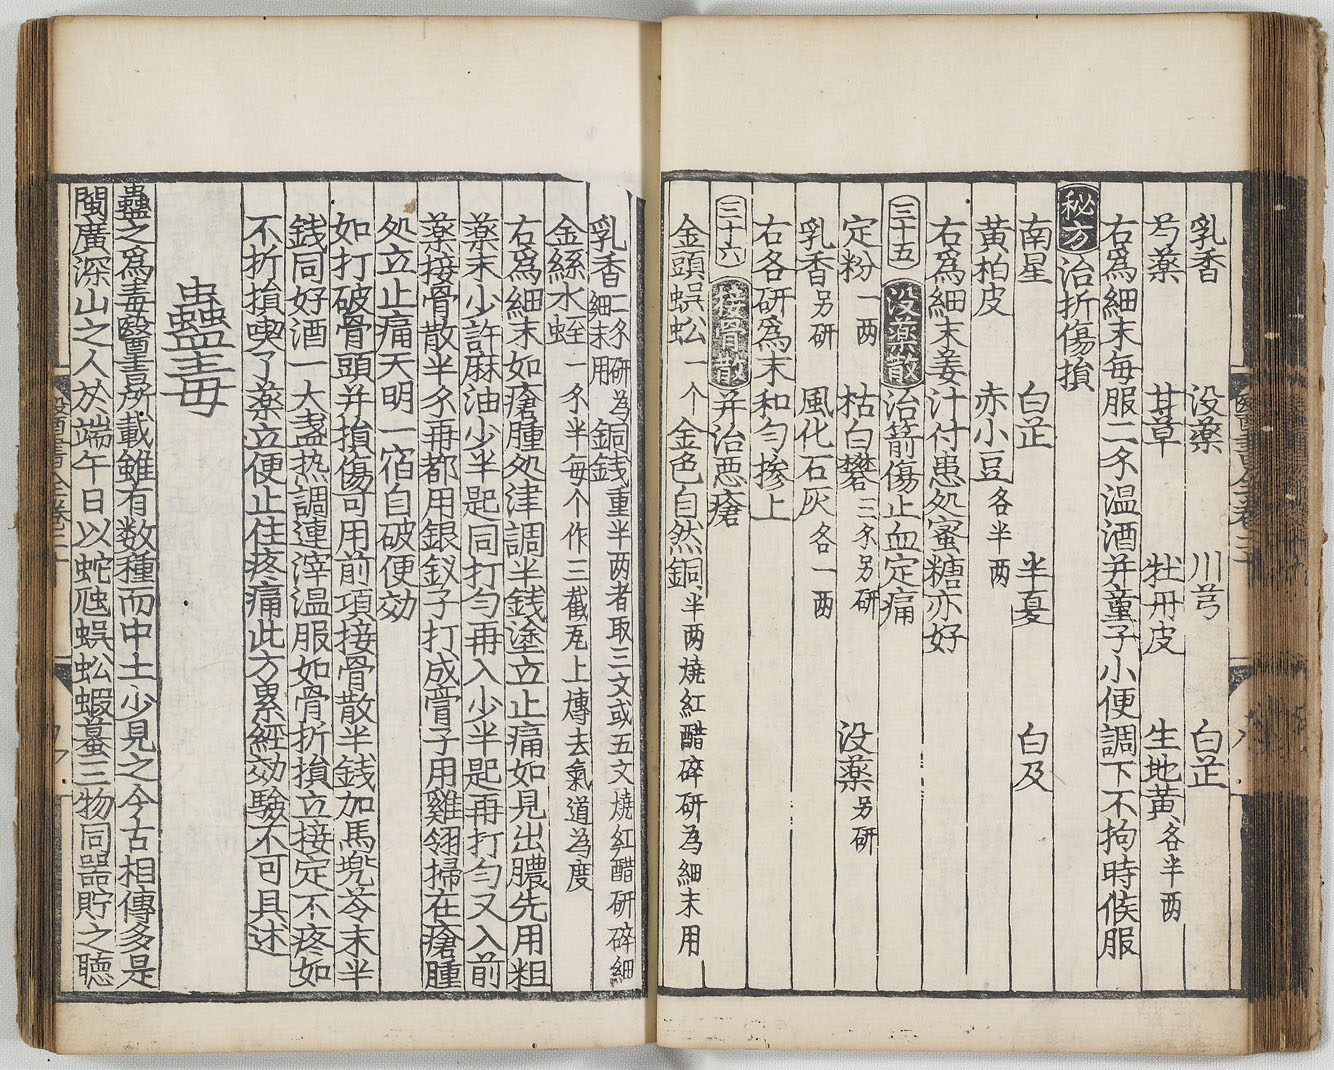 乳香　没藥　川芎　白芷
芍藥　甘草　牡丹皮　生地黃各半两
右爲細末每服二夕温酒并童子小便調下不拘時候服
秘方治折傷損
南星　白芷　半夏　白及
黃柏皮　赤小豆各半两
右爲細末姜汁付患処蜜糖亦好
三十五　没藥散　治箭傷止血定痛
定粉一两　枯白礬三夕另研　没藥另研
乳香另研　風化石灰各一两
右各研爲末和勻摻上
三十六　接骨散　并治悪瘡
金頭蜈蚣一个　金色自然銅半两燒紅醋碎研為細末用
乳香二夕研細末用　為銅錢重半两者取三文或五文燒紅醋研碎細
金絲水蛭一夕半每个作三截瓦上煿去氣道為度
右爲細末如瘡腫処津調半錢塗立止痛如見出膿先用粗
藥末少許麻油少半匙同打勻再入少半匙再打勻又入前
藥接骨散半夕再都用銀釵子打成膏子用雞翎掃在瘡腫
処立止痛天明一宿自破便効
如打破骨頭并損傷可用前項接骨散半錢加馬兜苓末半
錢同好酒一大盞热調連滓温服如骨折損立接定不疼如
不折損喫了藥立便止住疼痛此方累經効驗不可具述
蠱毒
蠱之爲毒醫書所載雖有数種而中土少見之今古相傳多是
閩廣深山之人於端午日以蛇虺蜈蚣蝦蟇三物同器貯之聴